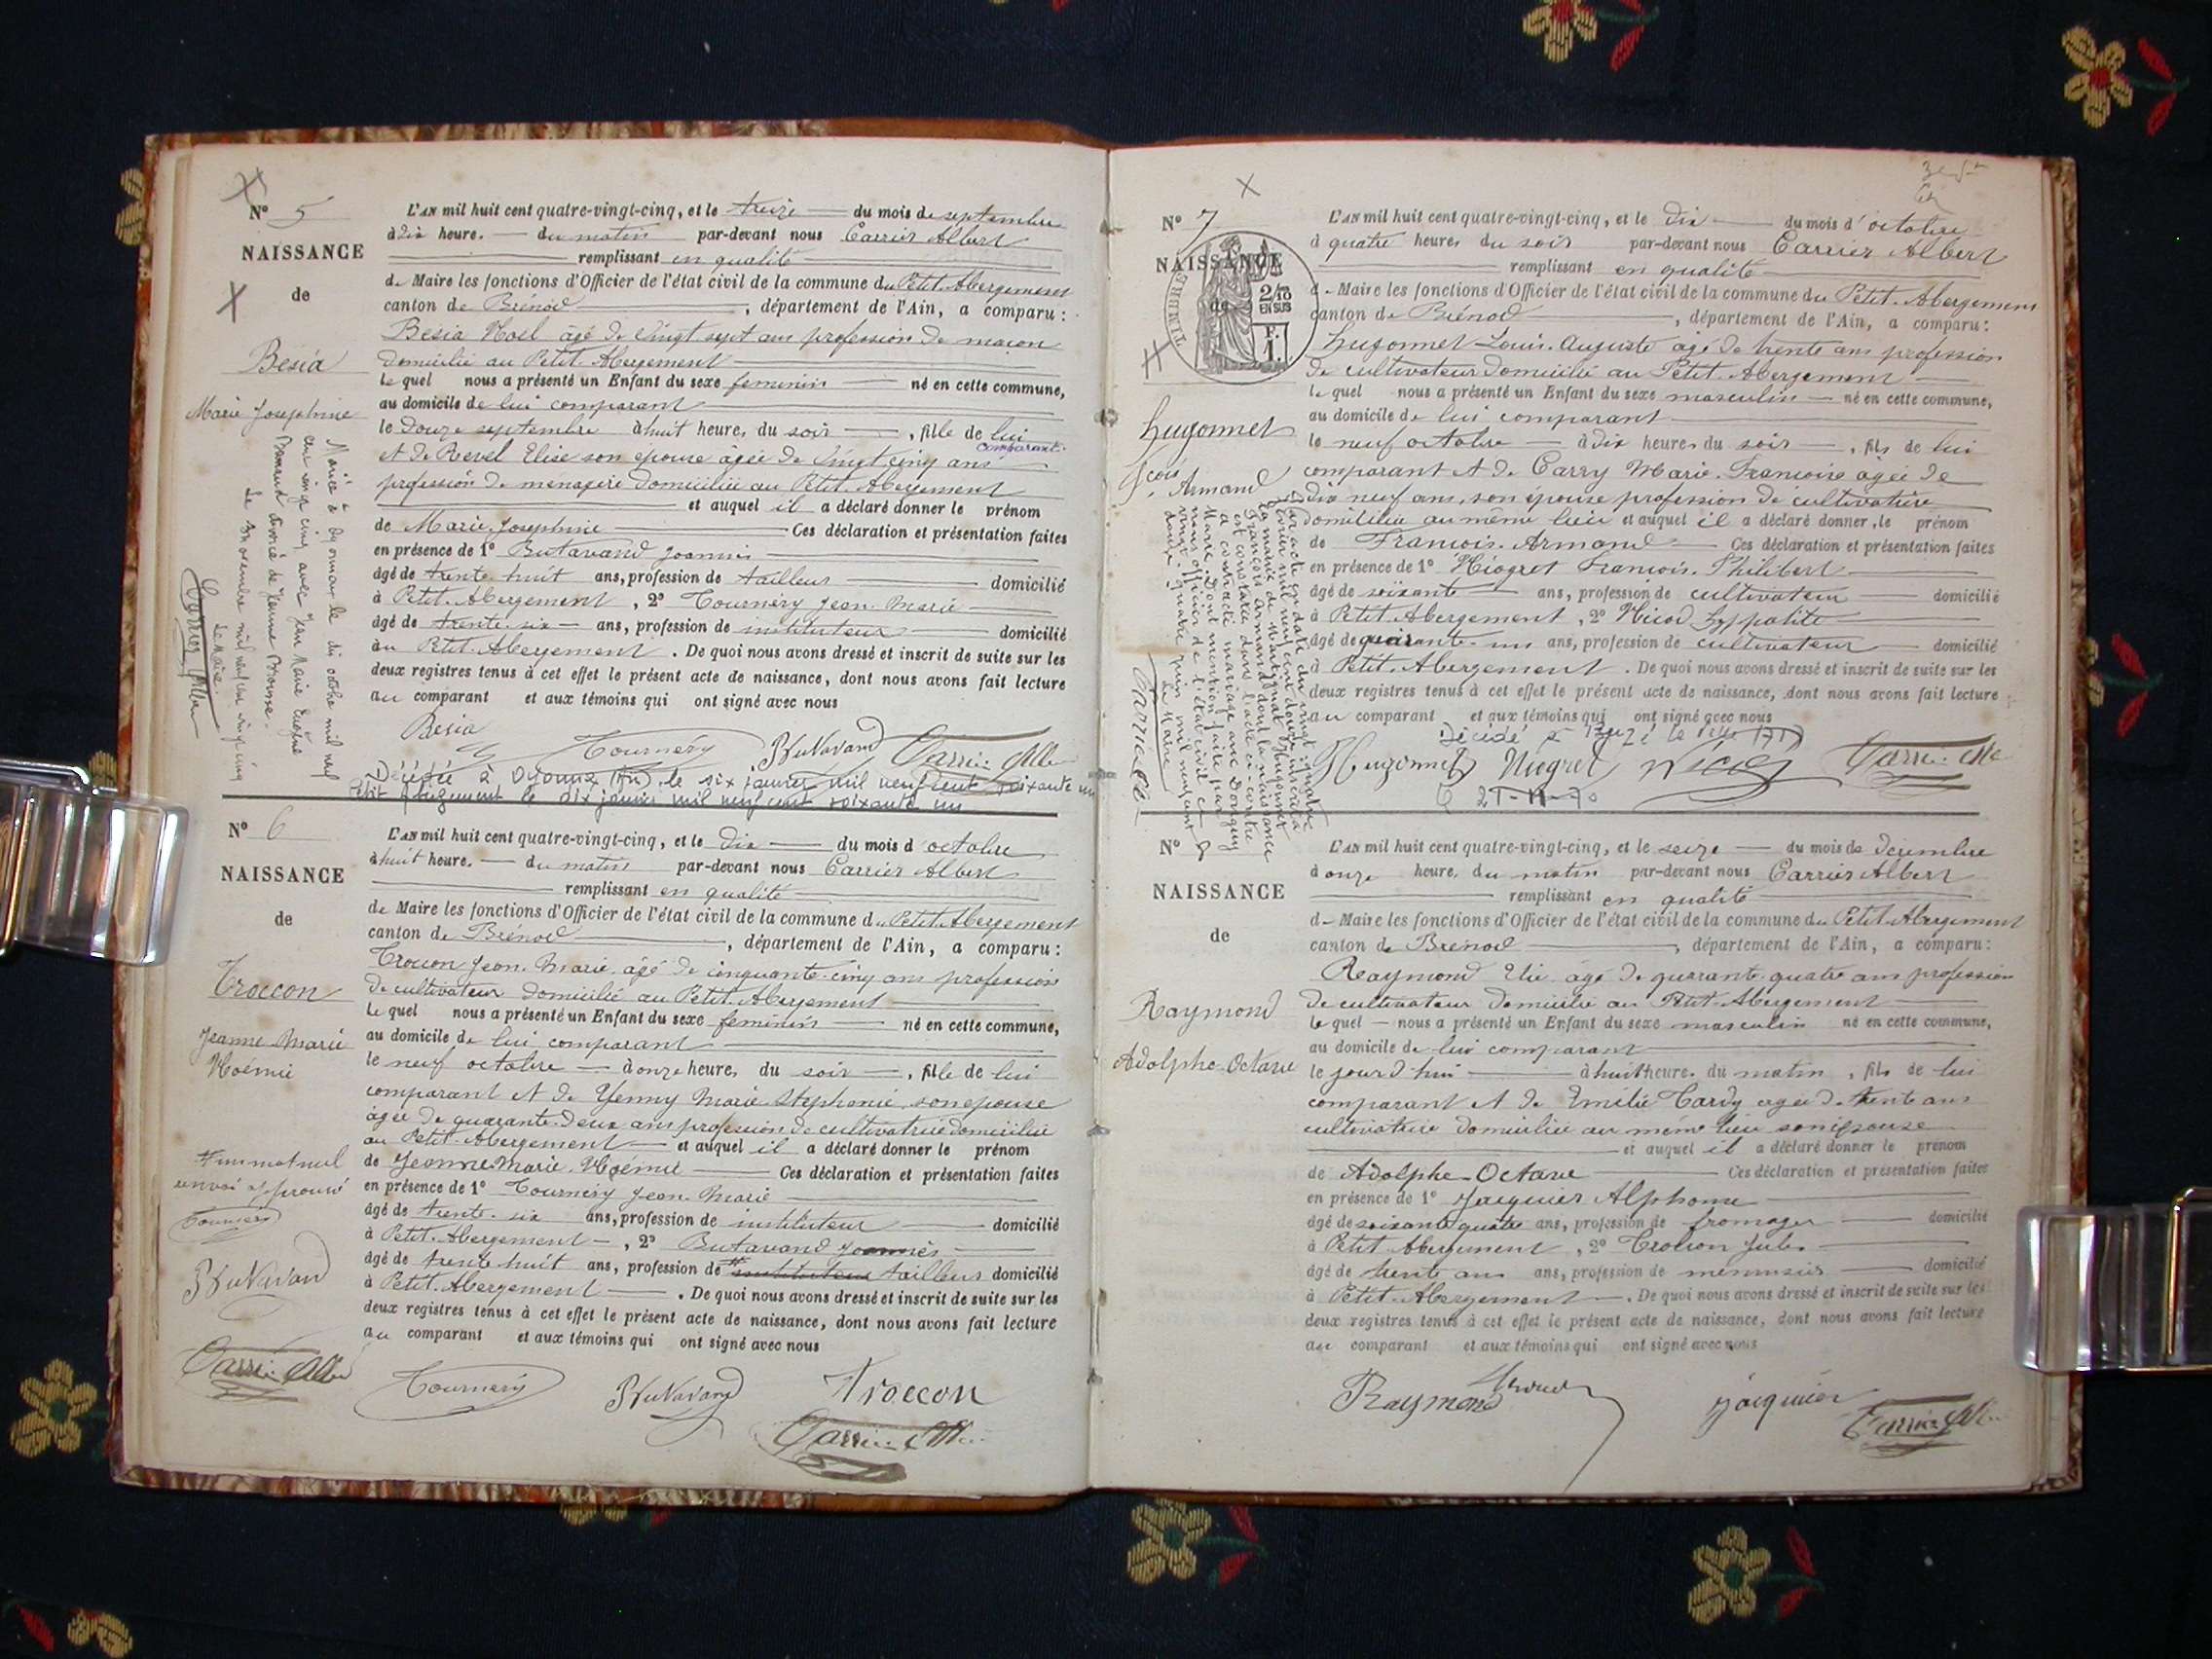 N° 5
NAISSANCE
de
Besia
Marie Josephine
L'AN mil huit cent quatre-vingt-cinq, et le treize du mois de septembre
à dix heure. du matin par-devant nous Carrier Albert
remplissant en qualité
de Maire les fonctions d'Officier de l'état civil de la commune du Petit-Abergement
canton de Brénod, département de l'Ain, a comparu :
Besia Noel âgé de vingt sept ans profession de maçon
domicilié au Petit-Abergement
le quel nous a présenté un Enfant du sexe feminin né en cette commune,
au domicile de lui comparant
le douze septembre à huit heures du soir, fille de lui
comparant
et de Revel Elise son épouse agée de vingt cinq ans
profession de menagère domiciliée au Petit-Abergement
et auquel il a déclaré donner le prénom
de Marie Josephine Ces déclaration et présentation faites
en présence de 1° Butavand Joannis
âgé de trente huit ans, profession de tailleur domicilié
à Petit-Abergement, 2° Tournery Jean-Marie
âgé de trente-six ans, profession de instituteur domicilié
au Petit-Abergement. De quoi nous avons dressé et inscrit de suite sur les
deux registres tenus à cet effet le présent acte de naissance, dont nous avons fait lecture
au comparant et aux témoins qui ont signé avec nous
Besia Tournery Butavand Carrier
Décédée à Oyonnax (Ain) le six janvier mil neuf cent soixante un
Petit Abergement le dix janvier mil neuf cent soixante un
Mariée à Oyonnax le dix octobre mil neuf
cent vingt cinq avec Jean Marie Eugène
divorcé de Jeanne
Le 3 novembre mil neuf cent vingt cinq
Le Maire.
N° 6
NAISSANCE
de
Troccon
Jeanne-Marie
Noémie
L'AN mil huit cent quatre-vingt-cinq, et le dix du mois d'octobre
à huit heure. du matin par-devant nous Carrier Albert
remplissant en qualité
de Maire les fonctions d'Officier de l'état civil de la commune du Petit-Abergement
canton de Brénod, département de l'Ain, a comparu :
Troccon Jean-Marie âgé de cinquante-cinq ans profession
de cultivateur domicilié au Petit-Abergement
le quel nous a présenté un Enfant du sexe feminin né en cette commune,
au domicile de lui comparant
le neuf octobre à onze heures du soir, fille de lui
comparant et de Yenny Marie Stephanie, son épouse
agée de quarante-deux ans profession de cultivatrice domiciliée
au Petit-Abergement et auquel il a déclaré donner le prénom
de Jeanne-Marie-Noémie Ces déclaration et présentation faites
en présence de 1° Tournery Jean-Marie
âgé de trente-six ans, profession de instituteur domicilié
à Petit-Abergement, 2° Butavand Joannès
âgé de trente huit ans, profession de # instituteur tailleur domicilié
à Petit-Abergement. De quoi nous avons dressé et inscrit de suite sur les
deux registres tenus à cet effet le présent acte de naissance, dont nous avons fait lecture
au comparant et aux témoins qui ont signé avec nous
# un mot nul
renvoi approuvé
Tournery
Butavand
Carrier
Tournery Butavand Troccon
Carrier
N° 7
NAISSANCE
de
TIMBRE
2/10
EN SUS
F.
1.
Hugonnet
fçois Armand
L'AN mil huit cent quatre-vingt-cinq, et le dix du mois d'octobre
à quatre heures du soir par-devant nous Carrier Albert
remplissant en qualité
de Maire les fonctions d'Officier de l'état civil de la commune du Petit-Abergement
canton de Brénod, département de l'Ain, a comparu :
Hugonnet Louis-Auguste agé de trente ans profession
de cultivateur domicilié au Petit-Abergement
le quel nous a présenté un Enfant du sexe masculin né en cette commune,
au domicile de lui comparant
le neuf octobre à dix heures du soir, fils de lui
comparant et de Carry Marie-Francoise agée de
dix neuf ans, son épouse profession de cultivatrice
domiciliée au même lieu et auquel il a déclaré donner le prénom
de Francois-Armand Ces déclaration et présentation faites
en présence de 1° Niogret Francois-Philibert
âgé de soixante ans, profession de cultivateur domicilié
à Petit-Abergement, 2° Nicod Hyppolite
âgé de quarante-un ans, profession de cultivateur domicilié
à Petit-Abergement. De quoi nous avons dressé et inscrit de suite sur les
deux registres tenus à cet effet le présent acte de naissance, dont nous avons fait lecture
au comparant et aux témoins qui ont signé avec nous
Décédé à le
Hugonnet Niogret Nicod Carrier
Par acte en date du vingt quatre
février mil neuf cent douze inséré à
la mairie de Martignat Hugonnet
François Armand dont la naissance
est constatée dans l'acte ci-contre
a contracté mariage avec
Marie. Dont mention faite par
nous officier de l'état civil ce
vingt quatre juin mil neuf cent
douze. Le Maire
N° 8
NAISSANCE
de
Raymond
Adolphe-Octave
L'AN mil huit cent quatre-vingt-cinq, et le seize du mois de decembre
à onze heure. du matin par-devant nous Carrier Albert
remplissant en qualité
de Maire les fonctions d'Officier de l'état civil de la commune du Petit-Abergement
canton de Brénod, département de l'Ain, a comparu :
Raymond Elie âgé de quarante-quatre ans profession
de cultivateur domicilié au Petit-Abergement
le quel nous a présenté un Enfant du sexe masculin né en cette commune,
au domicile de lui comparant
le jour d'hui à huit heures du matin, fils de lui
comparant et de Emélie Tardy agée de trente ans
cultivatrice domiciliée au même lieu son épouse
et auquel il a déclaré donner le prénom
de Adolphe-Octave Ces déclaration et présentation faites
en présence de 1° Jacquier Alphonse
âgé de soixante quatre ans, profession de fromager domicilié
à Petit Abergement, 2° Trocon Jules
âgé de trente ans ans, profession de menuisier domicilié
à Petit-Abergement. De quoi nous avons dressé et inscrit de suite sur les
deux registres tenus à cet effet le présent acte de naissance, dont nous avons fait lecture
au comparant et aux témoins qui ont signé avec nous
Raymond Jacquier Carrier